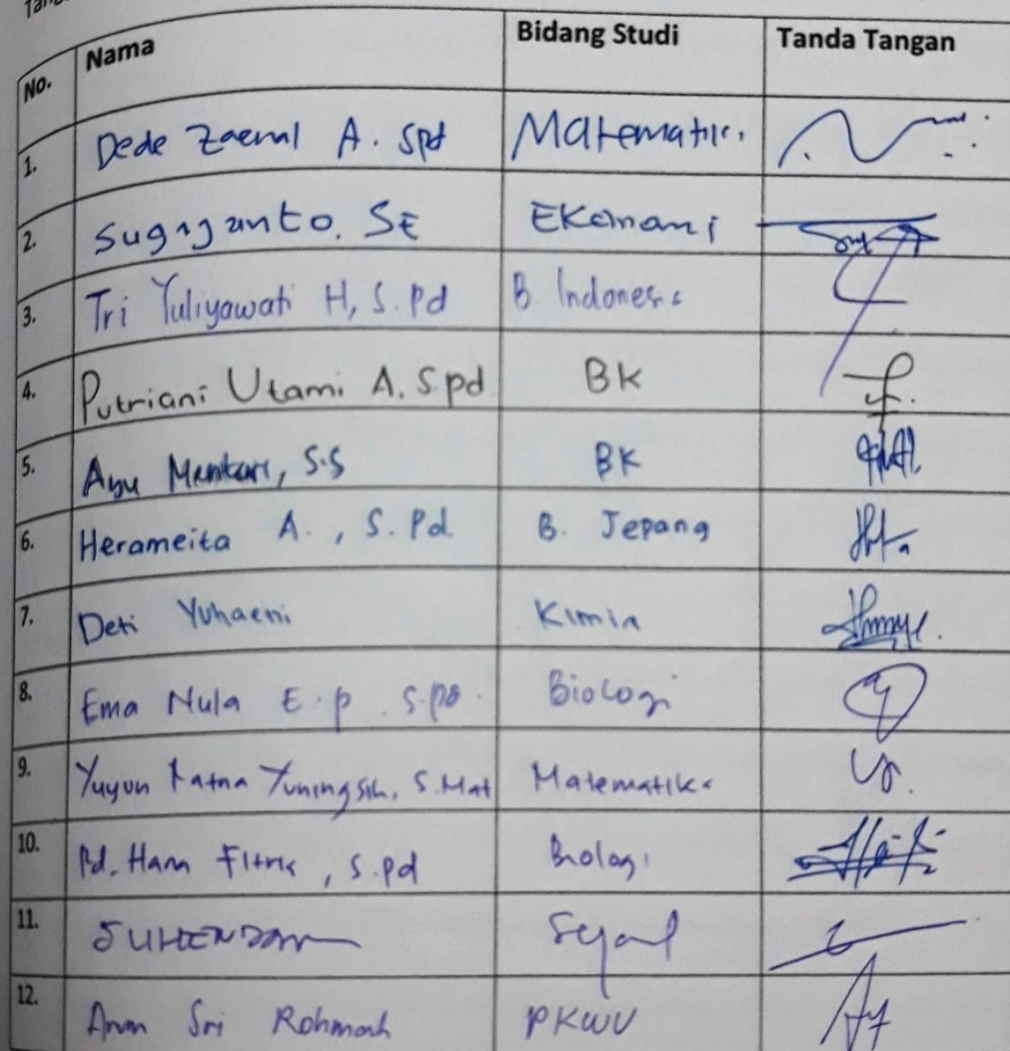 No. Nama Bidang Studi Tanda Tangan
1. Dede Zaenal A. Spd Matematik
2. Sugiyanto. SE Ekonomi
3. Tri Yuliyawati H, S.Pd B. Indonesia
4. Putriani Utami A. S.pd BK
5. Ayu Mentari, S.S BK
6. Herameita A., S.Pd. B. Jepang
7. Deti Yuhaeni Kimia
8. Ema Nula E.p S.pd. Biologi
9. Yuyun Ratna Yuningsih, S.Mat Matematika
10. Rd. Hani Fitria, S.pd Biologi
11. SUHENDAR Sejarah
12. Arum Sri Rohmah PKWU